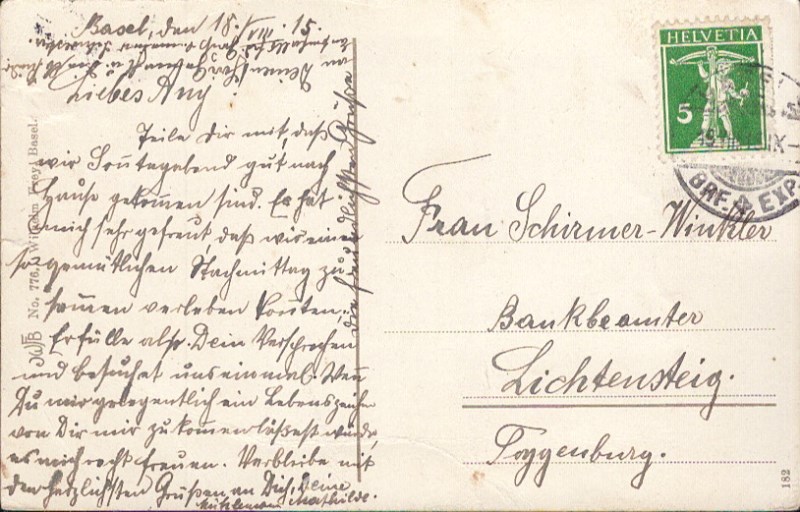 Basel, den 18. VIII. 15.
Liebes Anny
Teile Dir mit, daß
wir Sonntagabend gut nach
Hause gekommen sind. Es hat
mich sehr gefreut daß wir einen
so gemütlichen Nachmittag zu-
sammen verleben konnten,
Erfülle also Dein Versprechen
und besuchet uns einmal. Wenn
Du mir gelegentlich ein Lebenszeichen
von Dir mir zukommen läßest würde
es mich recht freuen. Verbleibe mit
den herzlichsten Grüßen an Dich, Deine
Mathilde.
die freundlichsten Grüße
No. 776. Wilhelm Frey, Basel.
HELVETIA
5
BRF. EXP.
Frau Schirmer-Winkler
Bankbeamter
Lichtensteig.
Toggenburg.
182